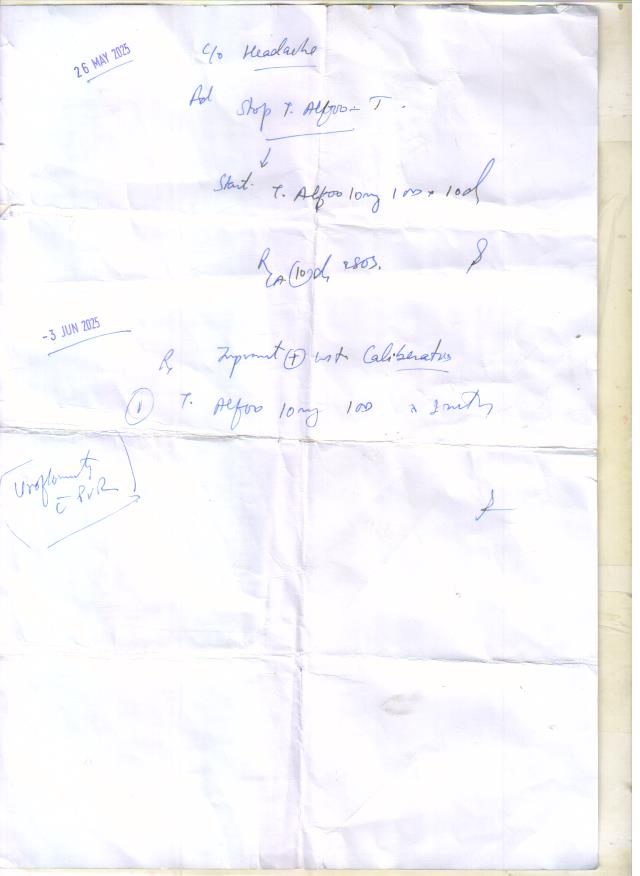 26 MAY 2025
c/o Headache
Ad
Stop T. Alfoo - T.
Start. T. Alfoo 10mg 1OD x 10d
R
(10)d, SOS.
- 3 JUN 2025
(+) with Caliberation
(1) T. Alfoo 10mg 1OD x 2mths
Uroflowmetry
c PVR